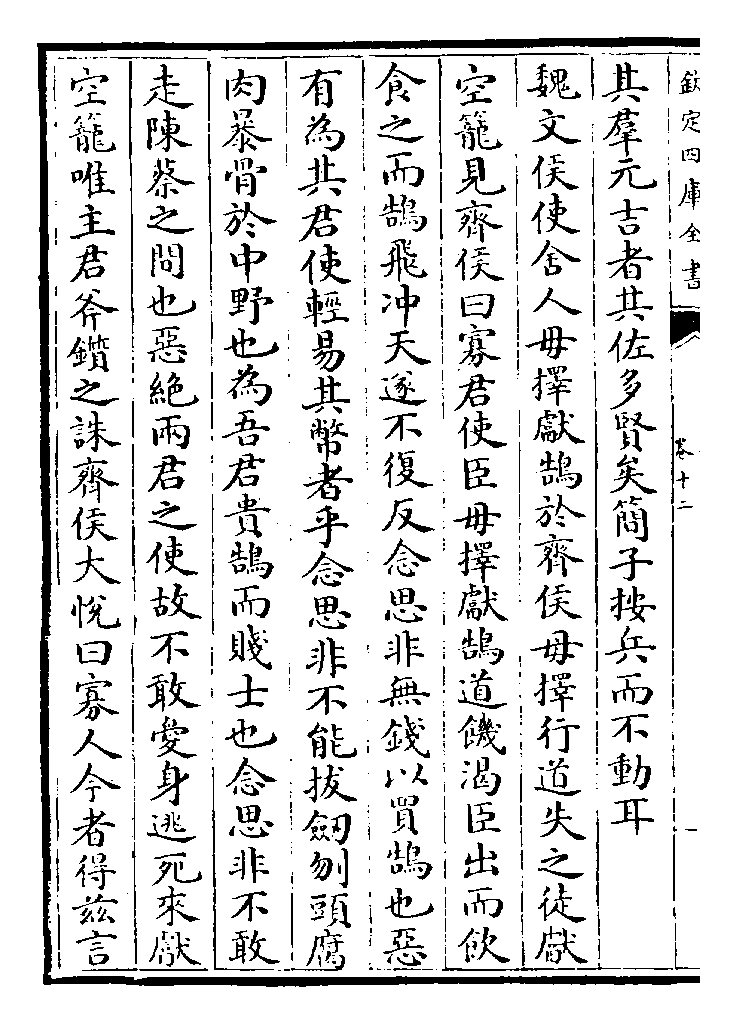 欽定四庫全書
卷十二
其羣元吉者其佐多賢矣簡子按兵而不動耳
魏文侯使舍人毋擇獻鵠於齊侯毋擇行道失之徒獻
空籠見齊侯曰寡君使臣毋擇獻鵠道饑渴臣出而飲
食之而鵠飛冲天遂不復反念思非無錢以買鵠也惡
有為其君使輕易其幣者乎念思非不能拔劒刎頭腐
肉暴骨於中野也為吾君貴鵠而賤士也念思非不敢
走陳蔡之間也惡絶兩君之使故不敢愛身逃死來獻
空籠唯主君斧鑕之誅齊侯大悅曰寡人今者得兹言